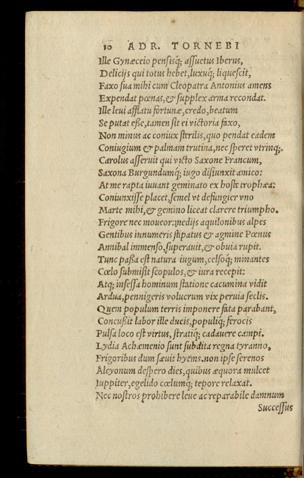 10 ADR. TORNEBI
Ille Gynæceio pensisq; assuetus Iberus,
Delicijs qui totus hebet, luxuq; liquescit,
Faxo sua mihi cum Cleopatra Antonius amens
Expendat pœnas, & supplex arma recondat.
Ille leui afflatu fortunæ, credo, beatum
Se putat esse, tamen sit ei victoria faxo,
Non minus ac coniux sterilis, quo pendat eadem
Coniugium & palmam trutina, nec speret vtrinq;.
Carolus asseruit qui victo Saxone Francum,
Saxona Burgundumq; iugo disiunxit amico:
At me rapta iuuant geminato ex hoste trophæa:
Coniunxisse placet, semel vt defungier vno
Marte mihi, & gemino liceat clarere triumpho.
Frigore nec moueor: medijs aquilonibus alpes
Gentibus innumeris stipatus & agmine Pœnus
Annibal immenso, superauit, & obuia rupit.
Tunc passa est natura iugum, celsosq; minantes
Cœlo submisit scopulos, & iura recepit:
Atq; insessa hominum statione cacumina vidit
Ardua, pennigeris volucrum vix peruia seclis.
Quem populum terris imponere fata parabant,
Concussit labor ille ducis, populiq; ferocis
Pulsa loco est virtus, stratiq; cadauere campi.
Lydia Achæmenio sunt subdita regna tyranno,
Frigoribus dum sæuit hyems. non ipse serenos
Alcyonum despero dies, quibus æquora mulcet
Iuppiter, egelido cœlumq; tepore relaxat.
Nec nostros prohibere leue ac reparabile damnum
Successus